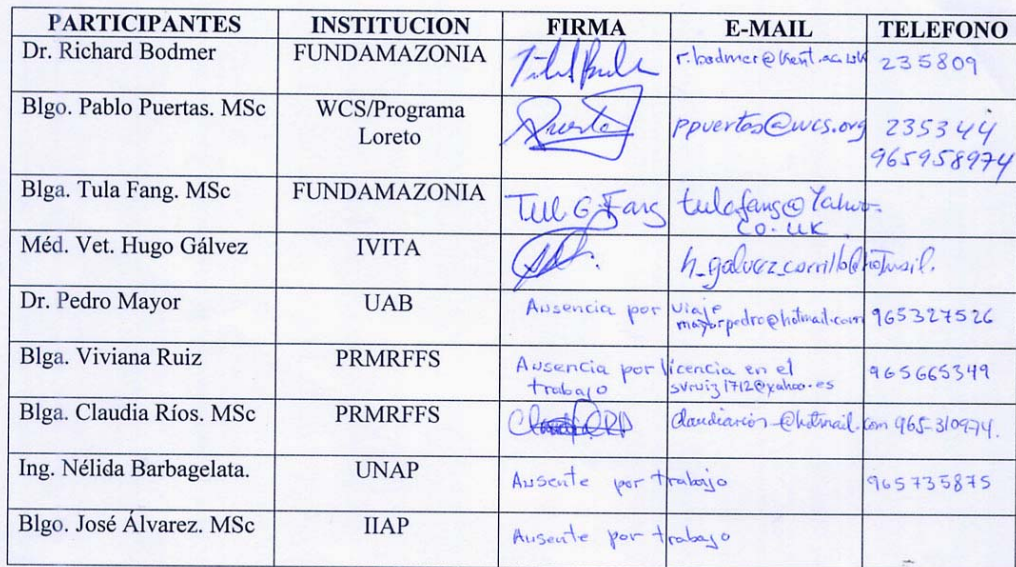 PARTICIPANTES INSTITUCION FIRMA E-MAIL TELEFONO
Dr. Richard Bodmer FUNDAMAZONIA r.bodmer@kent.ac.uk 235809
Blgo. Pablo Puertas. MSc WCS/Programa Loreto Puertas ppuertas@wcs.org 235344
965958974
Blga. Tula Fang. MSc FUNDAMAZONIA Tul G. Fang tulafang@Yahoo.
co.uk
Méd. Vet. Hugo Gálvez IVITA h_galvez_carrillo@hotmail.
Dr. Pedro Mayor UAB Ausencia por viaje mayorpedro@hotmail.com 965327526
Blga. Viviana Ruiz PRMRFFS Ausencia por licencia en el
trabajo svruiz1712@yahoo.es 965665349
Blga. Claudia Ríos. MSc PRMRFFS claudiarios_@hotmail.com 965-310974.
Ing. Nélida Barbagelata. UNAP Ausente por trabajo 965735875
Blgo. José Álvarez. MSc IIAP Ausente por trabajo